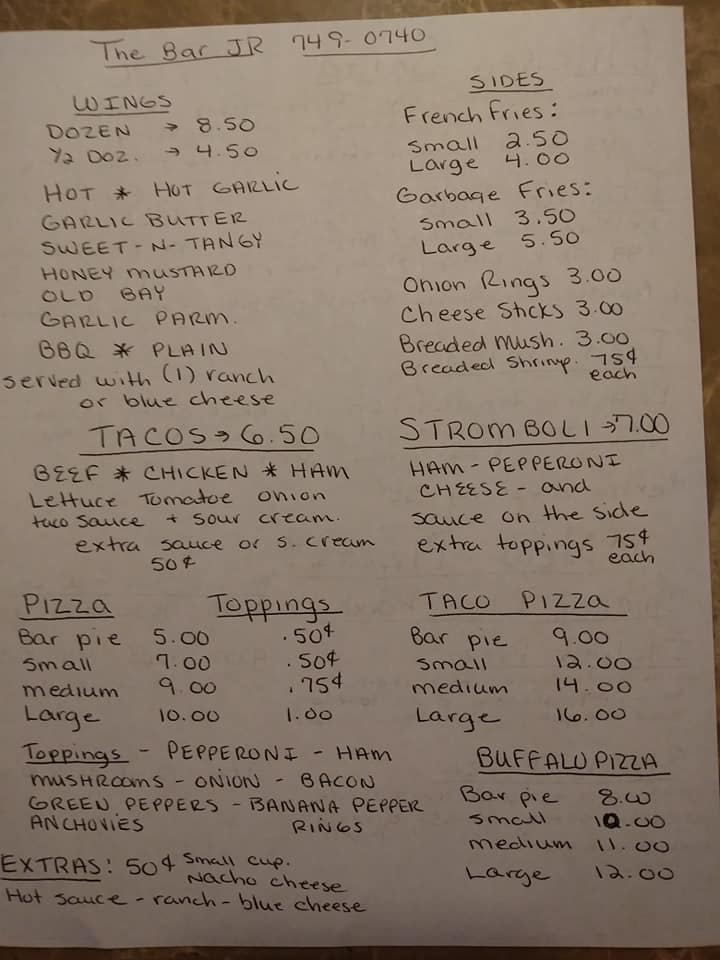 The Bar JR 749-0740
WINGS
DOZEN → 8.50
1/2 DOZ. → 4.50
HOT * HOT GARLIC
GARLIC BUTTER
SWEET-N-TANGY
HONEY MUSTARD
OLD BAY
GARLIC PARM.
BBQ * PLAIN
served with (1) ranch
or blue cheese
SIDES
French Fries:
Small 2.50
Large 4.00
Garbage Fries:
Small 3.50
Large 5.50
Onion Rings 3.00
Cheese Sticks 3.00
Breaded Mush. 3.00
Breaded Shrimp. 75¢
each
TACOS → 6.50
BEEF * CHICKEN * HAM
Lettuce Tomatoe onion
taco sauce + sour cream.
extra sauce or s. cream
50¢
STROMBOLI → 7.00
HAM - PEPPERONI
CHEESE - and
sauce on the side
extra toppings 75¢
each
Pizza Toppings
Bar pie 5.00 .50¢
Small 7.00 .50¢
medium 9.00 .75¢
Large 10.00 1.00
Toppings - PEPPERONI - HAM
MUSHROOMS - ONION - BACON
GREEN PEPPERS - BANANA PEPPER
ANCHOVIES RINGS
TACO Pizza
Bar pie 9.00
Small 12.00
medium 14.00
Large 16.00
BUFFALO PIZZA
Bar pie 8.00
Small 10.00
medium 11.00
Large 12.00
EXTRAS: 50¢ Small cup.
Nacho cheese
Hot sauce - ranch - blue cheese